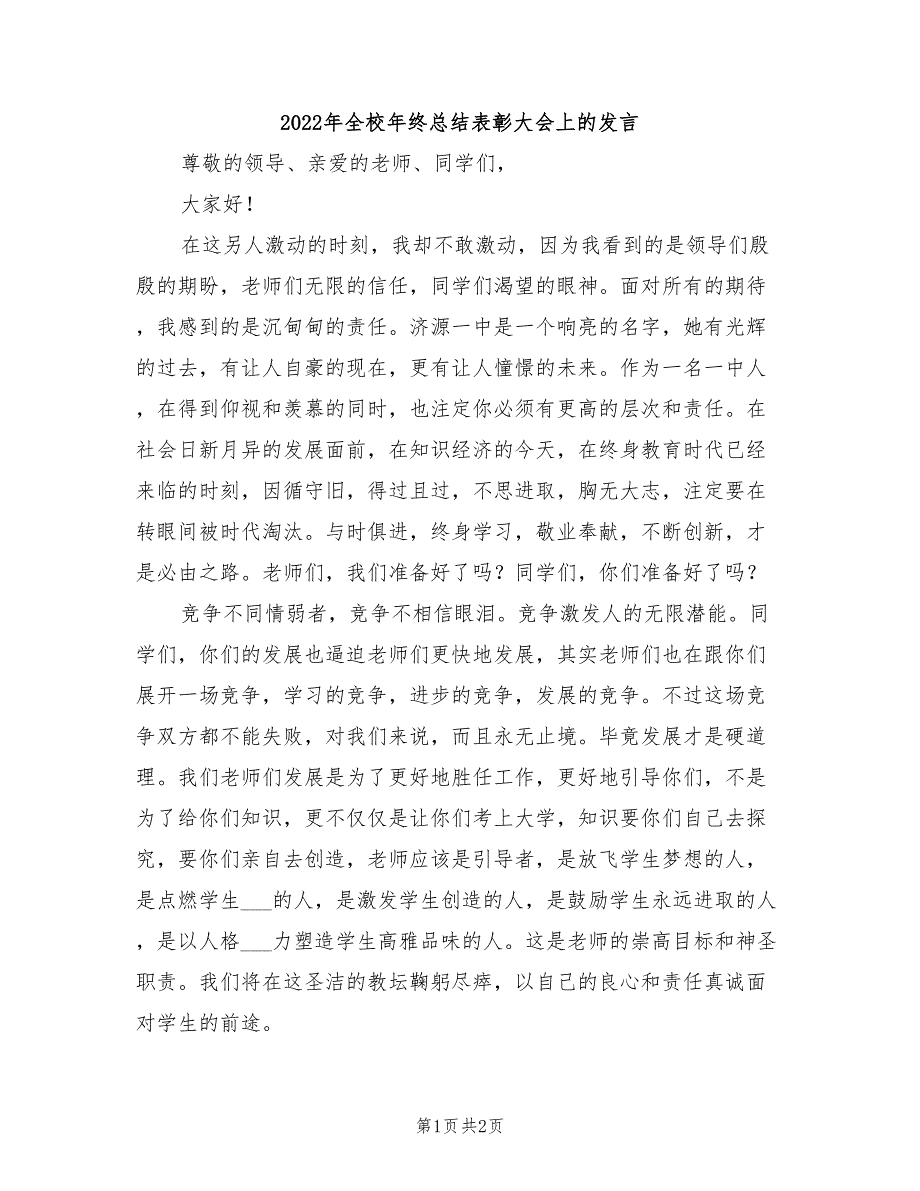 2022年全校年终总结表彰大会上的发言
尊敬的领导、亲爱的老师、同学们，
大家好！
在这另人激动的时刻，我却不敢激动，因为我看到的是领导们殷
殷的期盼，老师们无限的信任，同学们渴望的眼神。面对所有的期待
，我感到的是沉甸甸的责任。济源一中是一个响亮的名字，她有光辉
的过去，有让人自豪的现在，更有让人憧憬的未来。作为一名一中人
，在得到仰视和羡慕的同时，也注定你必须有更高的层次和责任。在
社会日新月异的发展面前，在知识经济的今天，在终身教育时代已经
来临的时刻，因循守旧，得过且过，不思进取，胸无大志，注定要在
转眼间被时代淘汰。与时俱进，终身学习，敬业奉献，不断创新，才
是必由之路。老师们，我们准备好了吗？同学们，你们准备好了吗？
竞争不同情弱者，竞争不相信眼泪。竞争激发人的无限潜能。同
学们，你们的发展也逼迫老师们更快地发展，其实老师们也在跟你们
展开一场竞争，学习的竞争，进步的竞争，发展的竞争。不过这场竞
争双方都不能失败，对我们来说，而且永无止境。毕竟发展才是硬道
理。我们老师们发展是为了更好地胜任工作，更好地引导你们，不是
为了给你们知识，更不仅仅是让你们考上大学，知识要你们自己去探
究，要你们亲自去创造，老师应该是引导者，是放飞学生梦想的人，
是点燃学生___的人，是激发学生创造的人，是鼓励学生永远进取的人
，是以人格___力塑造学生高雅品味的人。这是老师的崇高目标和神圣
职责。我们将在这圣洁的教坛鞠躬尽瘁，以自己的良心和责任真诚面
对学生的前途。
第1页共2页